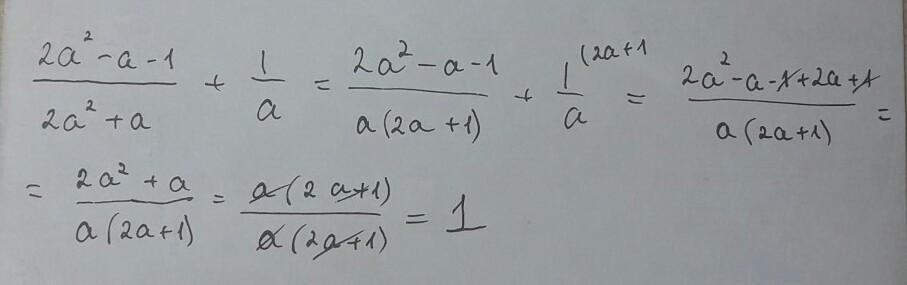 (2a² - a - 1)/(2a² + a) + 1/a = (2a² - a - 1)/(a(2a + 1)) + 1/a (2a+1 = (2a² - a - 1 + 2a + 1)/(a(2a+1)) =
= (2a² + a)/(a(2a+1)) = (a(2a+1))/(a(2a+1)) = 1